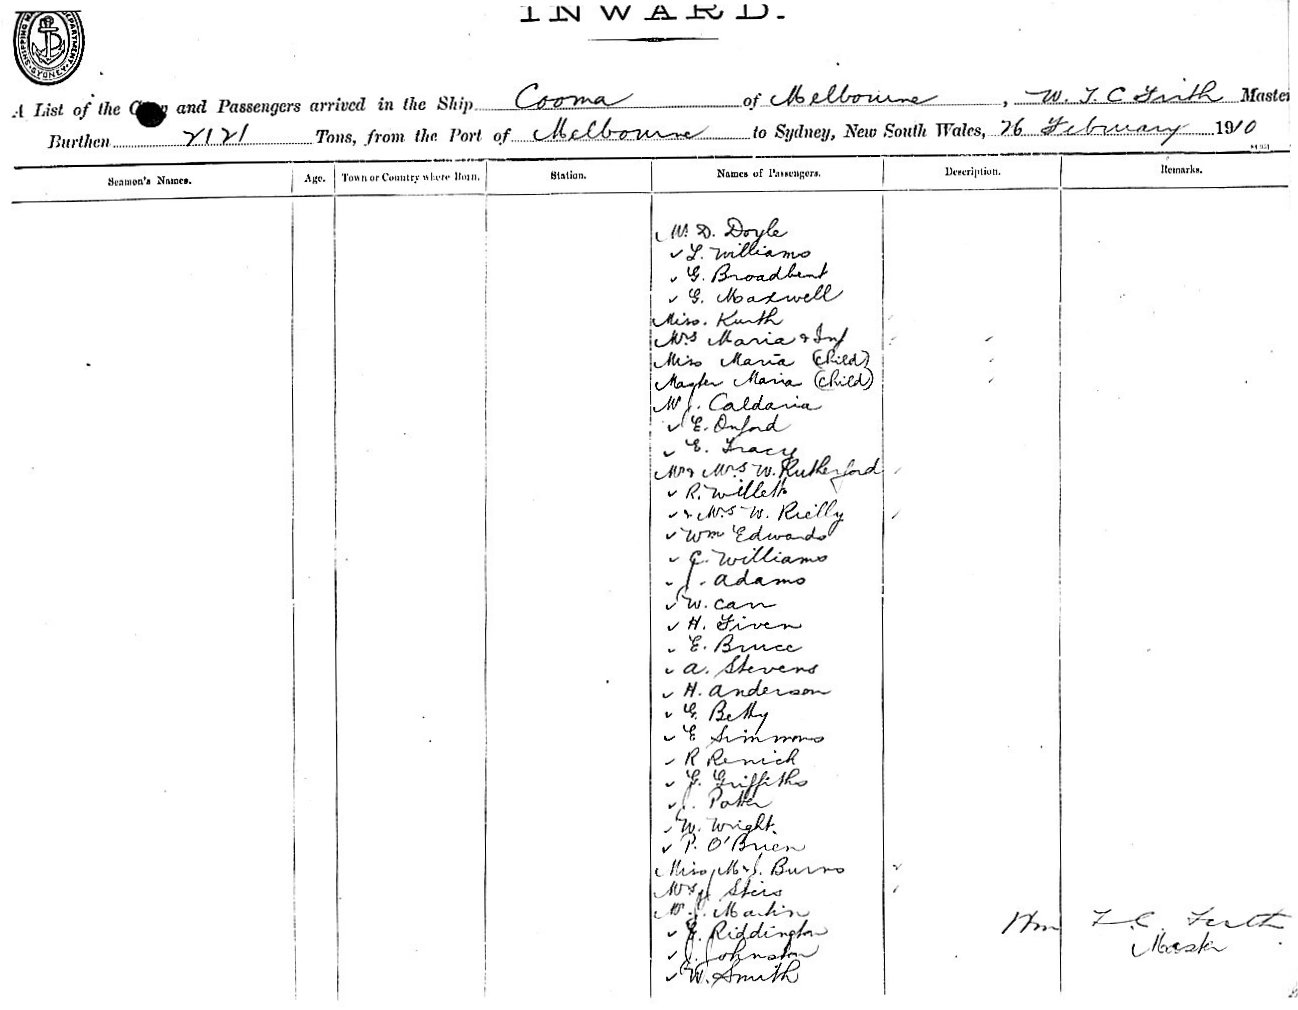 INWARD.
SHIPPING DEPARTMENT SYDNEY
A List of the and Passengers arrived in the Ship Cooma of Melbourne, W. T. C Frith Master
Burthen 2121 Tons, from the Port of Melbourne to Sydney, New South Wales, 26 February 1910
Seamen's Names. Age. Town or Country where Born. Station. Names of Passengers. Description. Remarks.
Mr. D. Doyle
✓ L. Williams
✓ G. Broadbent
✓ G. Maxwell
Miss. Kurth
Mrs Maria & Inf
Miss Maria (Child)
Master Maria (Child)
Mr J. Caldaria
✓ E. Oxford
✓ E. Tracy
Mr & Mrs W. Rutherford
✓ R. Willett
✓ & Mrs W. Rielly
✓ Wm Edwards
✓ C. Williams
✓ J. Adams
✓ W. Carr
✓ H. Tiven
✓ E. Bruce
✓ A. Stevens
✓ H. Anderson
✓ G. Betty
✓ E Simmons
✓ R Renich
✓ G. Griffiths
✓ J. Potter
✓ W. Wright.
✓ P. O'Brien
Miss M. J. Burns
Mrs J Steis
Mr J. Martin
✓ G. Riddington Wm T. C. Firth
✓ J. Johnston Master
✓ W. Smith